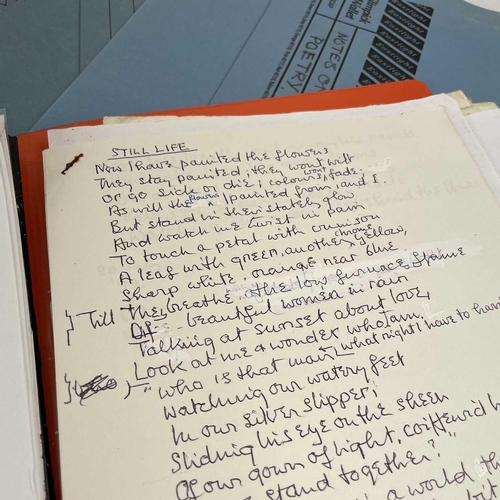 Slimpick
Wallet
NOTES ON
POETRY
STILL LIFE
Now I have painted the flowers
They stay painted; they wont wilt
Or go sick or die; colours wont fade;
As will the flowers I painted from, and I.
But stand in their stately glow
And watch me twist in pain
To touch a petal with crimson
A leaf with green, another chrome yellow,
Sharp white, orange near blue
Till They breathe the low furnace flame
Of beautiful women in rain
Talking at sunset about love,
Look at me & wonder who I am,
"who is that man, what right have to
watching our watery feet
In our silver slipper;
Sliding his eye on the sheen
Of our gown of night, coiffeur'd
stand together?"
a world